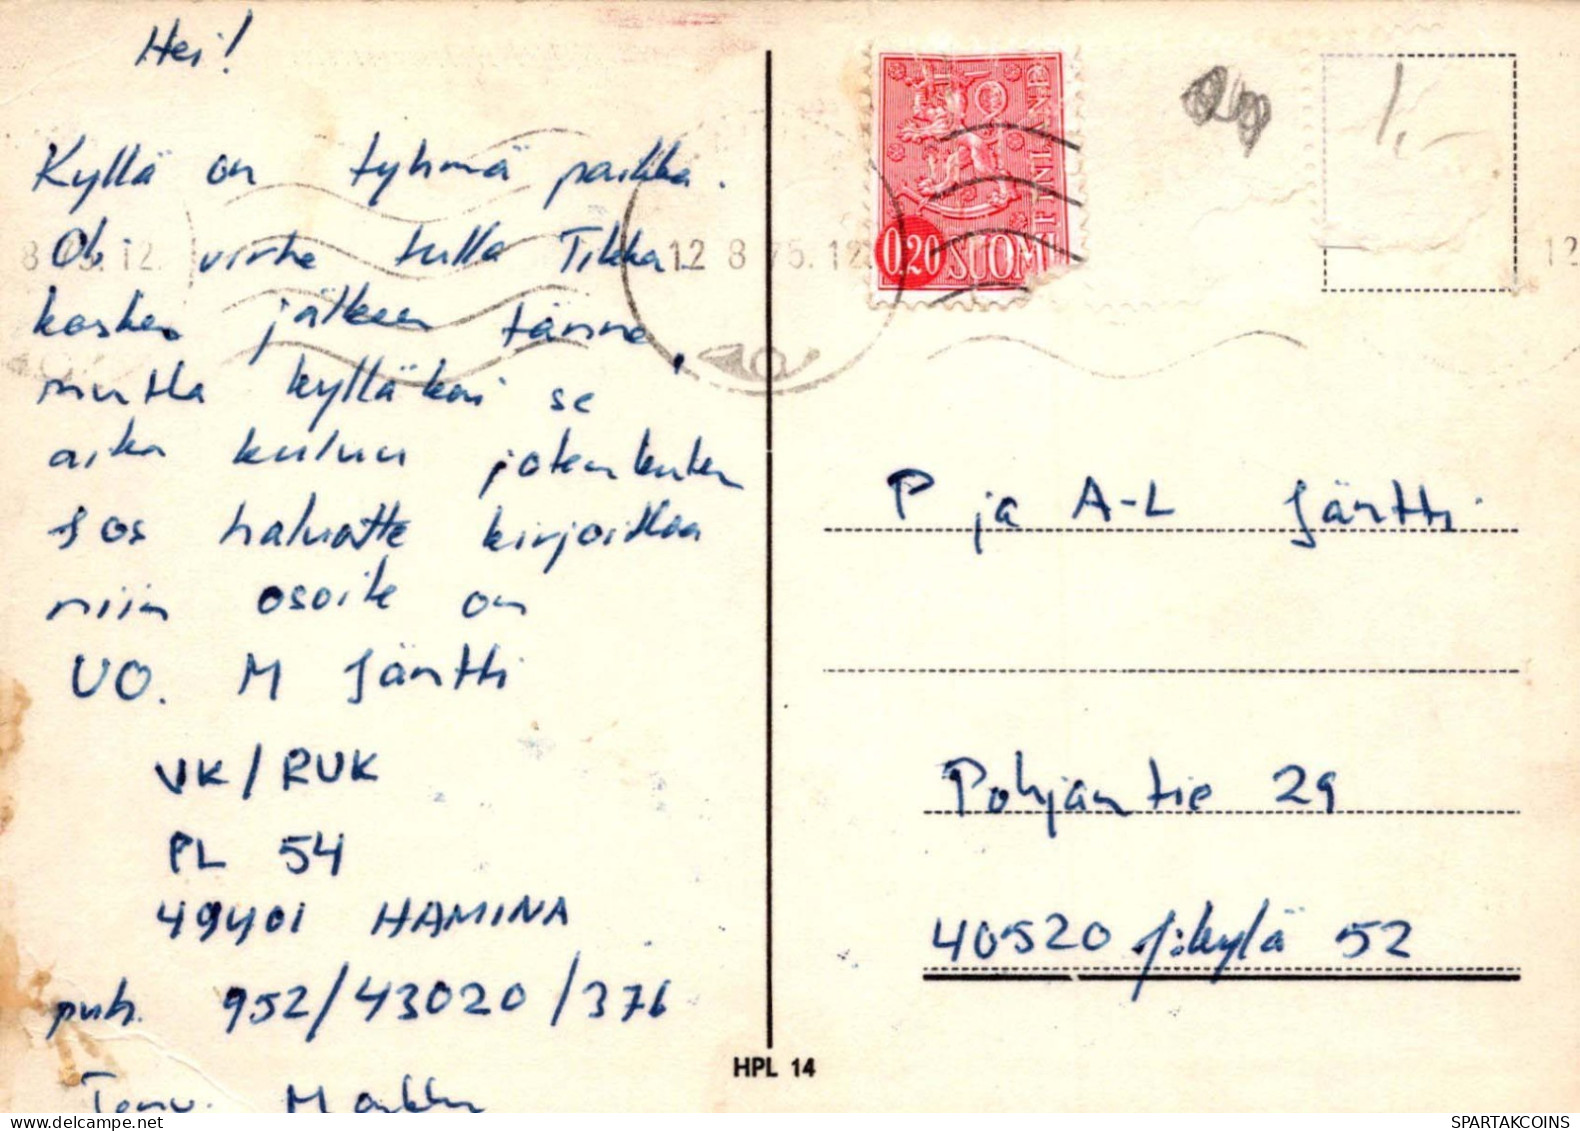 Hei!
Kyllä on tyhmä paikka.
Oli virhe tulla Tikka-
kosken jälkeen tänne,
mutta kyllä kai se
aika kuluu jotenkuten
Jos haluatte kirjoittaa
niin osoite on
UO. M Järtti
VK/RUK
PL 54
49401 HAMINA
puh. 952/43020/376
Terv. Markku
8 75.12
12 8 75.12
12
FINLAND
0,20 SUOMI
1,-
P ja A-L Järtti
Pohjantie 29
40520 J:kylä 52
HPL 14
SPARTAKCOINS
www.delcampe.net